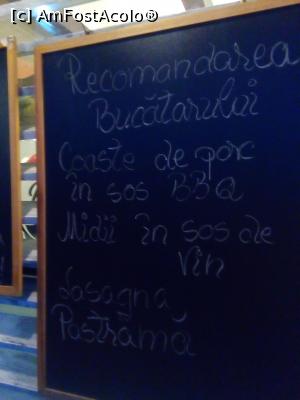 [c] AmFostAcolo®
Recomandarea
Bucătarului
Coaste de porc
în sos BBQ
Midii în sos de
vin
Lasagna
Pastramă